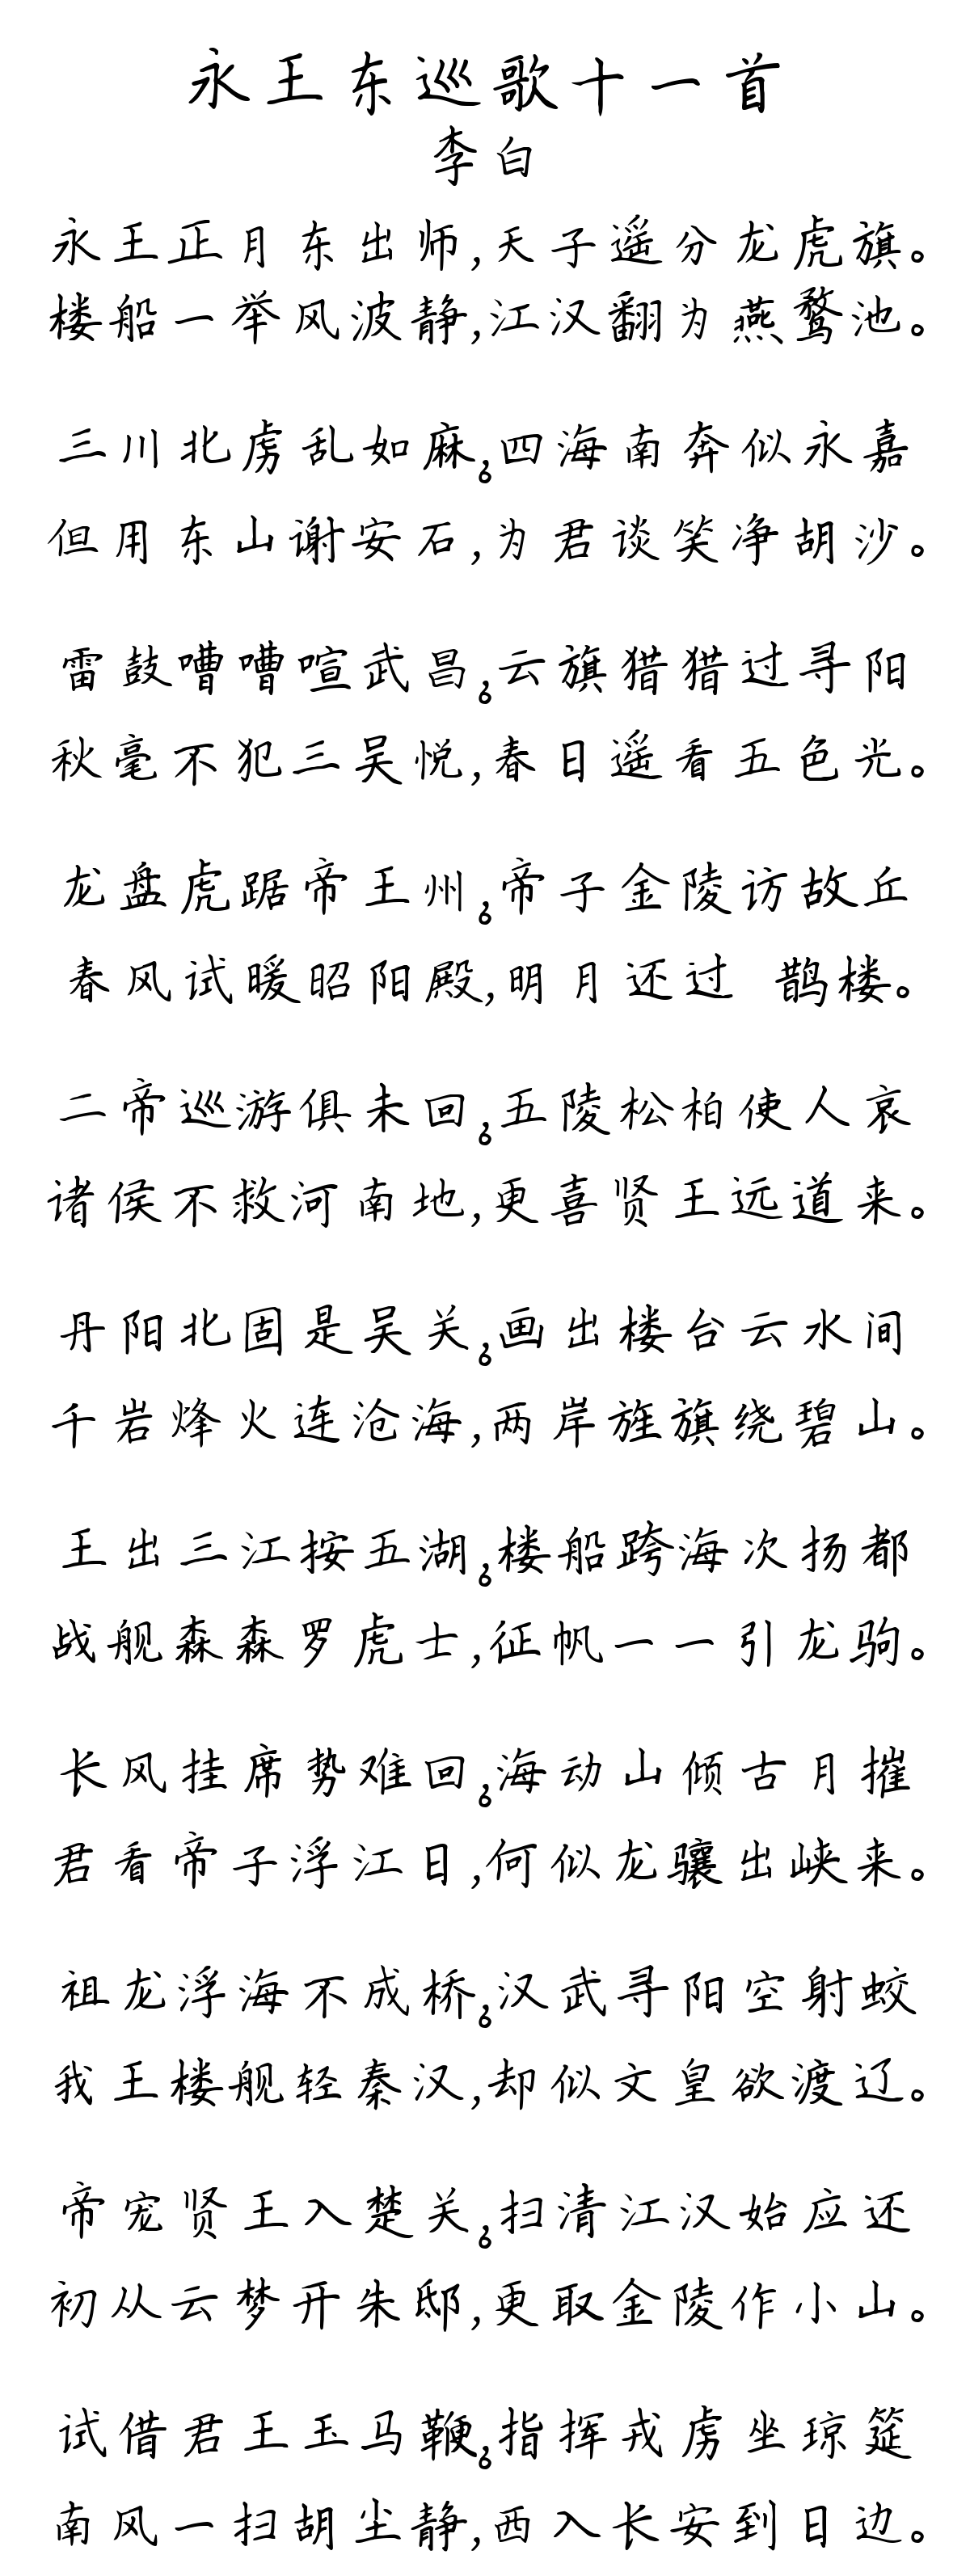 永王东巡歌十一首
李白
永王正月东出师,天子遥分龙虎旗。
楼船一举风波静,江汉翻为燕鹜池。
三川北虏乱如麻,四海南奔似永嘉。
但用东山谢安石,为君谈笑净胡沙。
雷鼓嘈嘈喧武昌,云旗猎猎过寻阳。
秋毫不犯三吴悦,春日遥看五色光。
龙盘虎踞帝王州,帝子金陵访故丘。
春风试暖昭阳殿,明月还过 鹊楼。
二帝巡游俱未回,五陵松柏使人哀。
诸侯不救河南地,更喜贤王远道来。
丹阳北固是吴关,画出楼台云水间。
千岩烽火连沧海,两岸旌旗绕碧山。
王出三江按五湖,楼船跨海次扬都。
战舰森森罗虎士,征帆一一引龙驹。
长风挂席势难回,海动山倾古月摧。
君看帝子浮江日,何似龙骧出峡来。
祖龙浮海不成桥,汉武寻阳空射蛟。
我王楼舰轻秦汉,却似文皇欲渡辽。
帝宠贤王入楚关,扫清江汉始应还。
初从云梦开朱邸,更取金陵作小山。
试借君王玉马鞭,指挥戎虏坐琼筵。
南风一扫胡尘静,西入长安到日边。